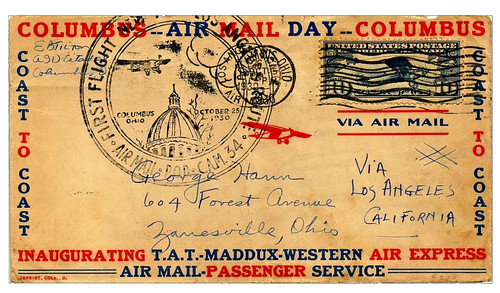 COLUMBUS -- AIR MAIL DAY -- COLUMBUS
COAST TO COAST
COAST TO COAST
FIRST FLIGHT
AIR MAIL
CAM. 34
COLUMBUS
OHIO
OCTOBER 25
1930
UNITED STATES POSTAGE
VIA AIR MAIL
George Hann
604 Forest Avenue
Zanesville, Ohio
VIA
LOS ANGELES
CALIFORNIA
INAUGURATING T.A.T.-MADDUX-WESTERN AIR EXPRESS
AIR MAIL-PASSENGER SERVICE